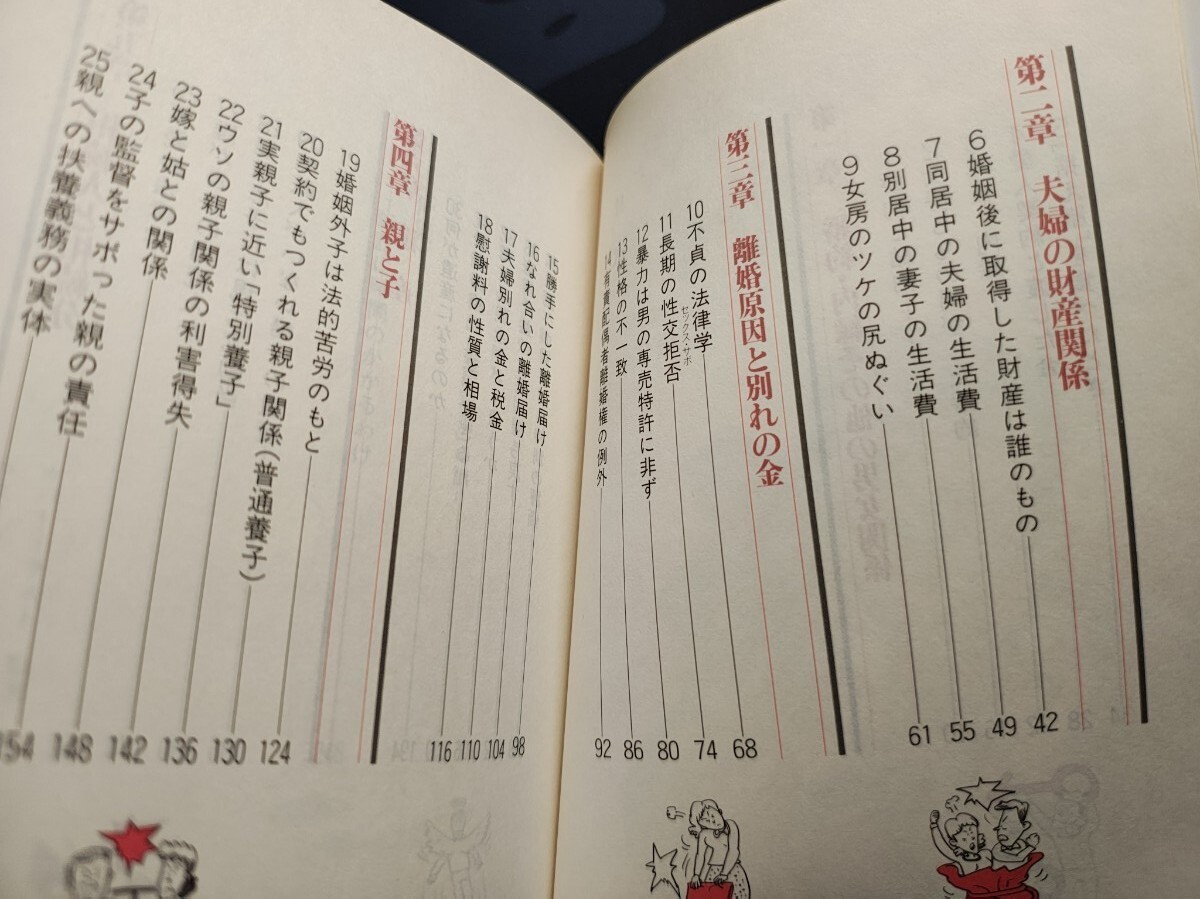 第二章　夫婦の財産関係
6 婚姻後に取得した財産は誰のもの 42
7 同居中の夫婦の生活費 49
8 別居中の妻子の生活費 55
9 女房のツケの尻ぬぐい 61
第三章　離婚原因と別れの金
10 不貞の法律学 68
11 長期の性交拒否 74
セックス・サボ
12 暴力は男の専売特許に非ず 80
13 性格の不一致 86
14 有責配偶者離婚権の例外 92
15 勝手にした離婚届け 98
16 なれ合いの離婚届け 104
17 夫婦別れの金と税金 110
18 慰謝料の性質と相場 116
第四章　親と子
19 婚姻外子は法的苦労のもと 124
20 契約でもつくれる親子関係(普通養子) 130
21 実親子に近い「特別養子」 136
22 ウソの親子関係の利害得失 142
23 嫁と姑との関係 148
24 子の監督をサボった親の責任 154
25 親への扶養義務の実体